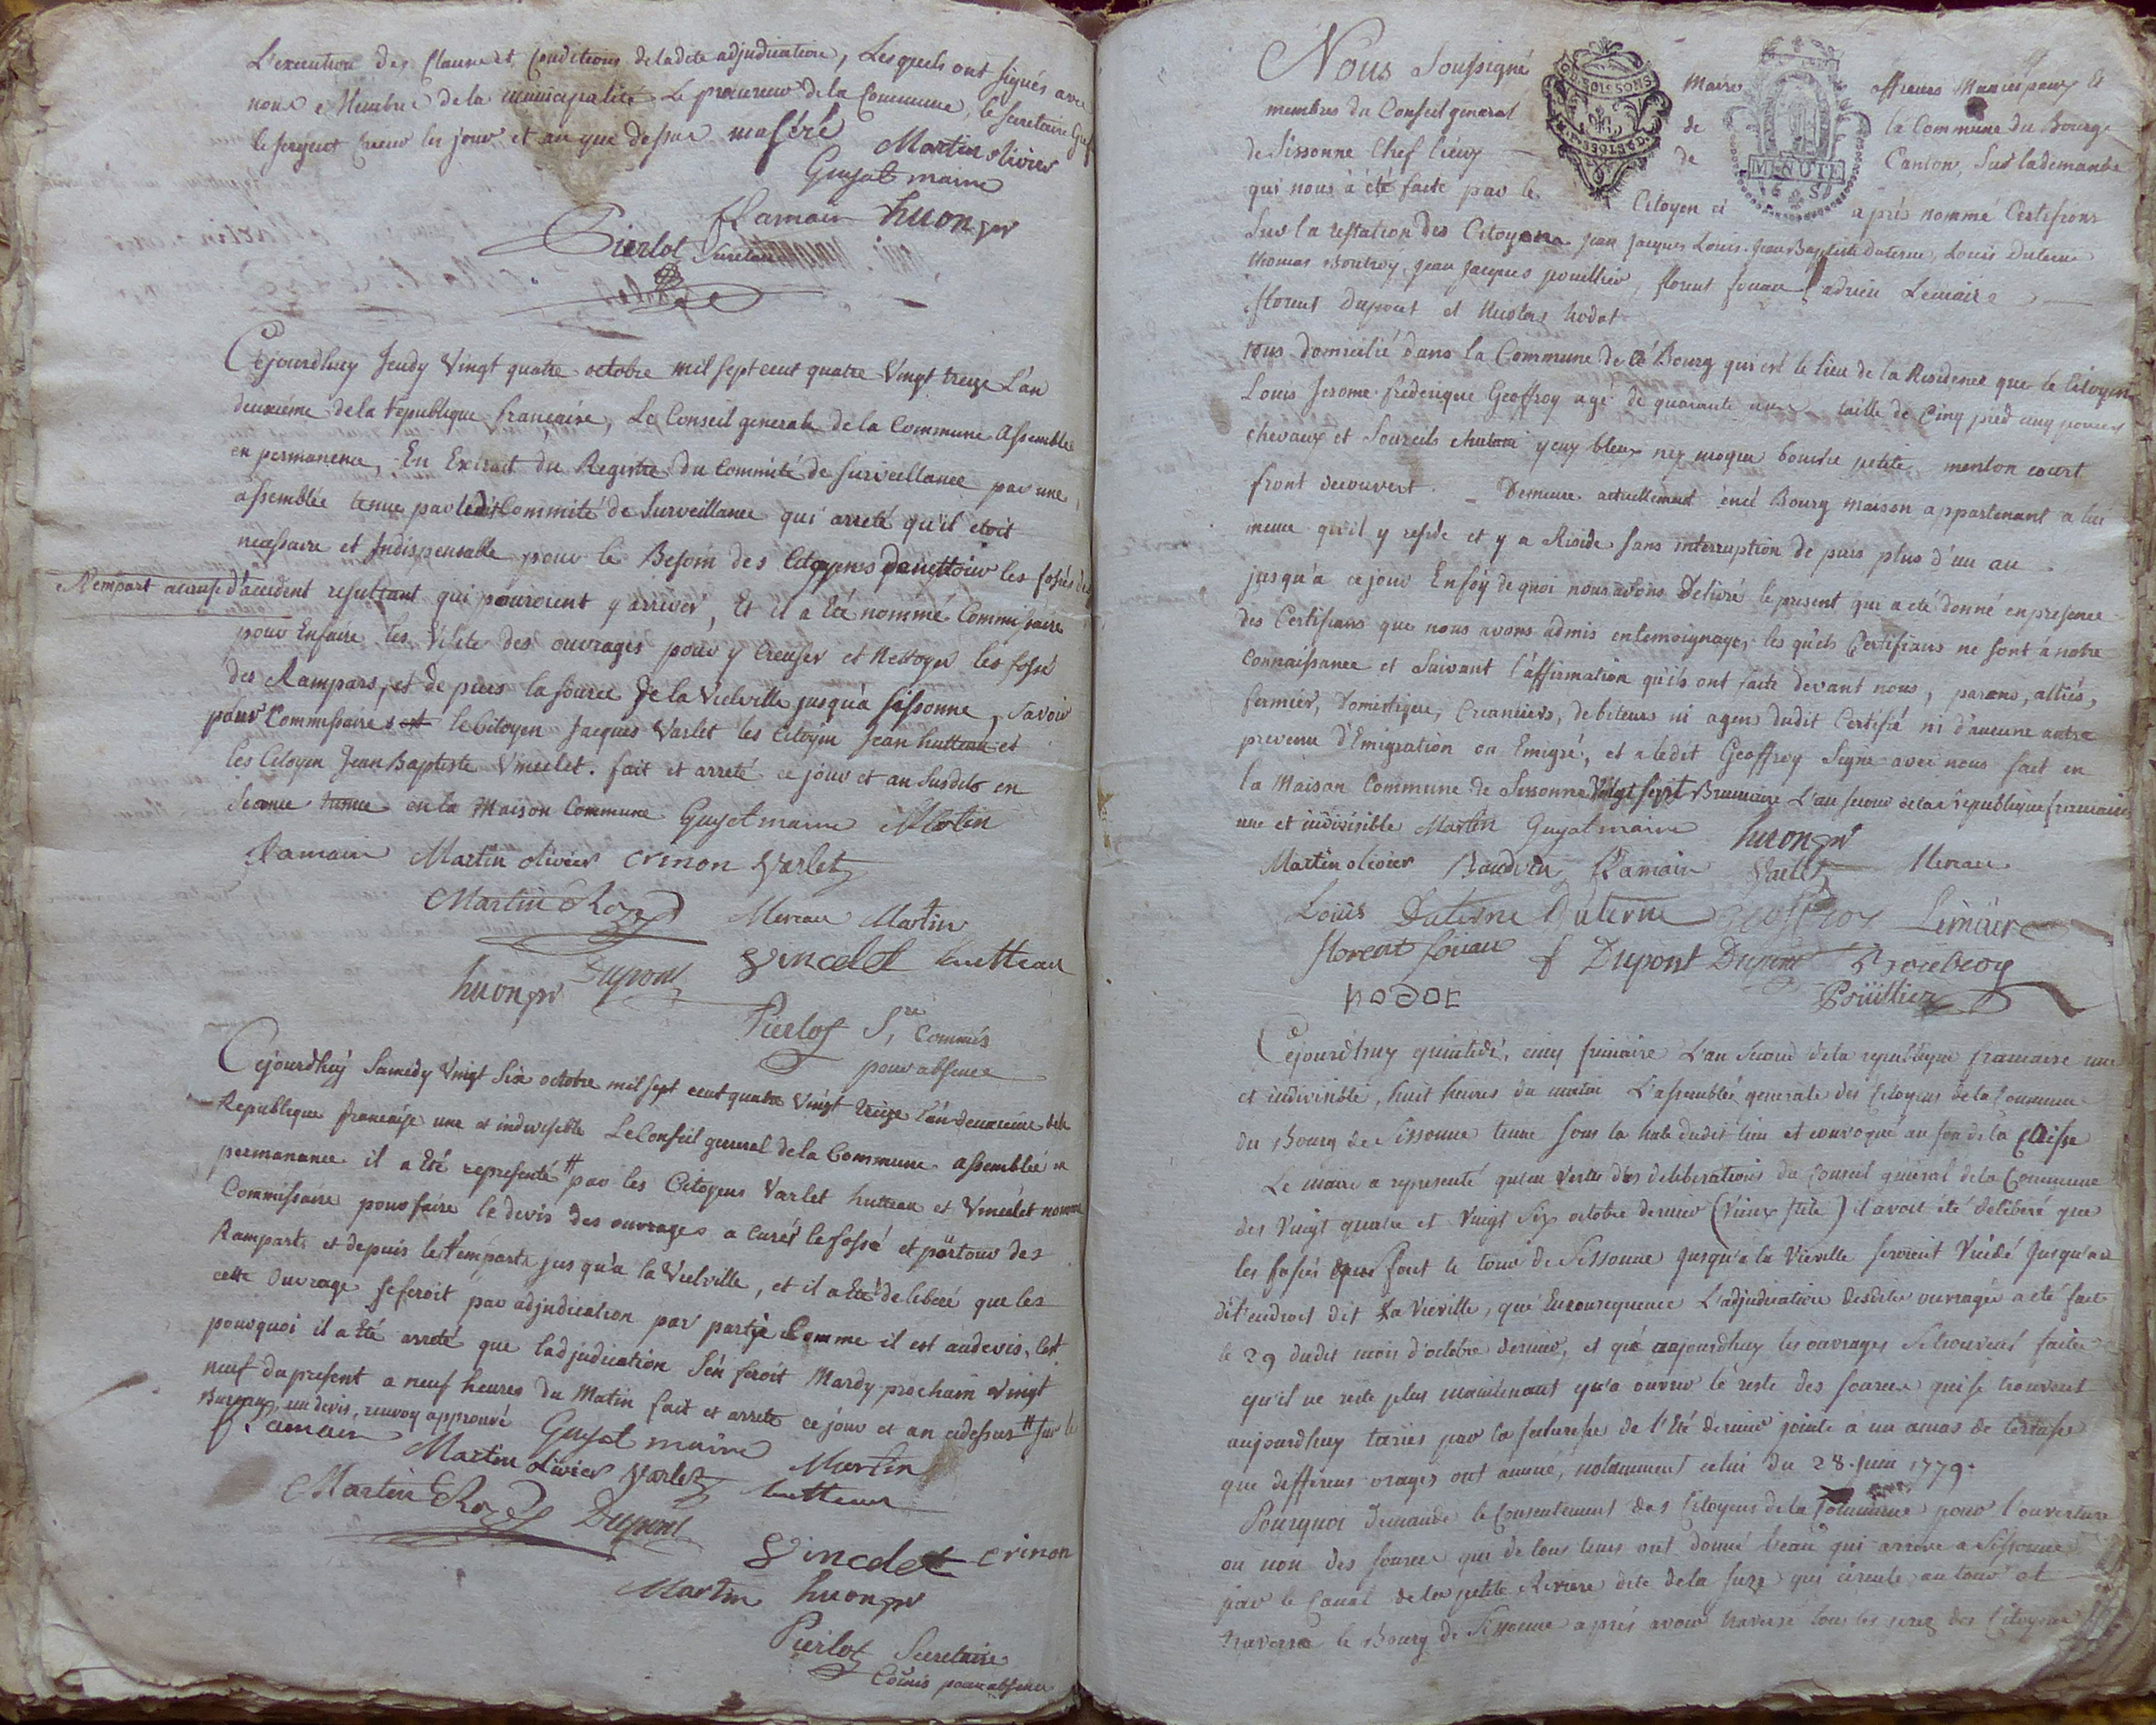 L'execution des Clauses et Conditions de ladite adjudication, Lesquels ont signés avec
nous e Membre de la municipalité Le procureur de la Commune, le secretaire
le sergent Crieur les jour et an que dessus maféré
Martin olivier
Guyot maire
flamain huon pr
Pierlot Secretaire
Cejourdhuy Jeudy Vingt quatre octobre mil sept cent quatre Vingt treize L'an
deuxiéme de la republique françaire, Le Conseil generale de la Commune Assemblé
en permanence, En Extrait du Registre du Commité de surveillance par une
assemblée tenue par ledit Commité de Surveillance qui arreté qu'il etoit
necessaire et Indispensable pour le Besoin des Citoyens de nettoier les fossés des
Rempart acause d'accident resultant qui pouroient y arriver, Et il a Eté nommé Commissaire
pour Enfaire les Visite des ouvrages pour y Creuser et Nettoyer les fossé
des Rampars, et de puis la source de la Vielville jusqu'a sissonne, Savoir
pour Commissaires le Citoyen Jacques Varlet les Citoyen Jean hutteau et
les Citoyen Jean Baptiste Vincelet. fait et arreté ce jour et an Susdits en
Seance tenue en la Maison Commune Guyot maire Martin
flamain Martin olivier crinon Varlet
Martin Mereau Martin
Vincelet hutteau
huon pr Dupont
Pierlot S.re Commis
pour absence
Cejourdhuy Samedy Vingt Six octobre mil sept cent quatre Vingt treize L'an deuxieme dela
Republique francaise une et indivisible Le Conseil general de la Commune assemblée en
permanance il a Eté representé # par les Citoyens Varlet hutteau et Vincelet nommé
Commissaire pour faire le devis des ouvrages a Curér le fossé et pourtour des
Ramparts et depuis les Remparts jusqu'à la Vielville, et il a Eté deliberé que les
cette ouvrage se feroit par adjudication par partie Comme il est audevis, C'est
pourquoi il a Eté arreté que ladjudication S'en feroit Mardy prochain Vingt
neuf du present a neuf heures du Matin fait et arreté ce jour et an cidessus # sur le
Bureau, un devis, renvoy approuvé Guyot maire
flamain Martin olivier Varlet Martin
Martin Dupont hutteau
Vincelet crinon
Martin huon pr
Pierlot Secretaire
Comis pour absence
Nous Soussigné Maire officiers Municipaux Et
membres du Conseil general de la Commune du Bourg
de Sissonne Chef lieux de Canton, Sur la demande
qui nous à été faite par le Citoyen ci après nommé Certifions
Sur la testation des Citoyens Jean Jacques Louis. Jean Baptiste Duterne, Louis Duterne
thomas Boutroy, Jean Jacques pouillier, florent fouau adrien Lemaire
florent Dupont et Nicolas hodot
tous domicilié dans la Commune de ce Bourg qui est le lieu de la Residence que le Citoyen
Louis Jerome frederique Geoffroy agé de quarante taille de Cinq pied cinq pouces
chevaux et Soureils chatain yeux bleux nez moyen bouche petite menton court
front decouvert. Demeure actuellement ence Bourg maison appartenant a lui
meme qu'il y reside et y a Riside sans interruption de puis plus d'un an
jusqu'à ce jour Enfoy de quoi nous avons Delivré le present qui a eté donné en presence
des Certifians que nous avons admis en temoignage, les quels Certifians ne sont à notre
Connaissance et Suivant l'affirmation qu'ils ont faite devant nous, parens, alliés,
fermier, Domestique, Creanciers, debiteurs ni agens dudit Certifié ni d'aucune autre
prevenu d'Emigration ou Emigré, et a ledit Geoffroy Signé avec nous fait en
la Maison Commune de Sissonne Vingt sept Brumaire L'an second de la republique francaise
une et indivisible Martin Guyot maire huon pr
Martin olivier Baudoin flamain Varlet Mereau
Louis Duterne Duterne Geoffroy Lemaire
florent fouau f Dupont Dupont Boutroy
hodot Pouillier
Cejourd'huy quintidi, cinq frimaire L'an Second de la republique francaise une
et indivisible, huit heures du matin L'assemblée generale des Citoyens de la Commune
du Bourg de Sissonne tenue sous la hale dudit lieu et convoqué au son de la Caisse
Le maire a representé qu'en vertu des deliberations du Conseil général de la Commune
des Vingt quatre et Vingt Six octobre dernier (Vieux stile) il avoit été délibéré que
les fossés qui font le tour de Sissonne jusqu'a la Vieville seroient Vuidé Jusqu'au
dit endroit dit La Vieville, que Enconsequence L'adjudication desdits ouvrages a été faite
le 29 dudit mois d'octobre dernier, et que aujourdhuy les ouvrages se trouvent faites
qu'il ne reste plus maintenant qu'a ouvrir le reste des sources qui se trouvent
aujourdhuy taries par la secheresse de l'Eté dernier jointe à un amas de
que differens orages ont amené, notamment celui du 28 Juin 1779.
Pourquoi Demande le Consentement des Citoyens de la Commune pour l'ouverture
ou non des sources qui de tous tems ont donné l'eau qui arrive a Sissonne
par le Canal de la petite Riviere dite de la qui circule autour et
traverse le Bourg de Sissonne aprés avoir traversé tous les des Citoyens